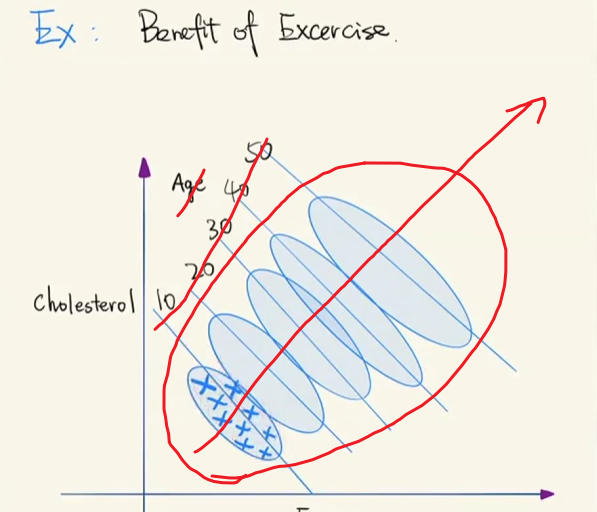 Ex: Benefit of Excercise.
50
Age 40
30
20
Cholesterol 10